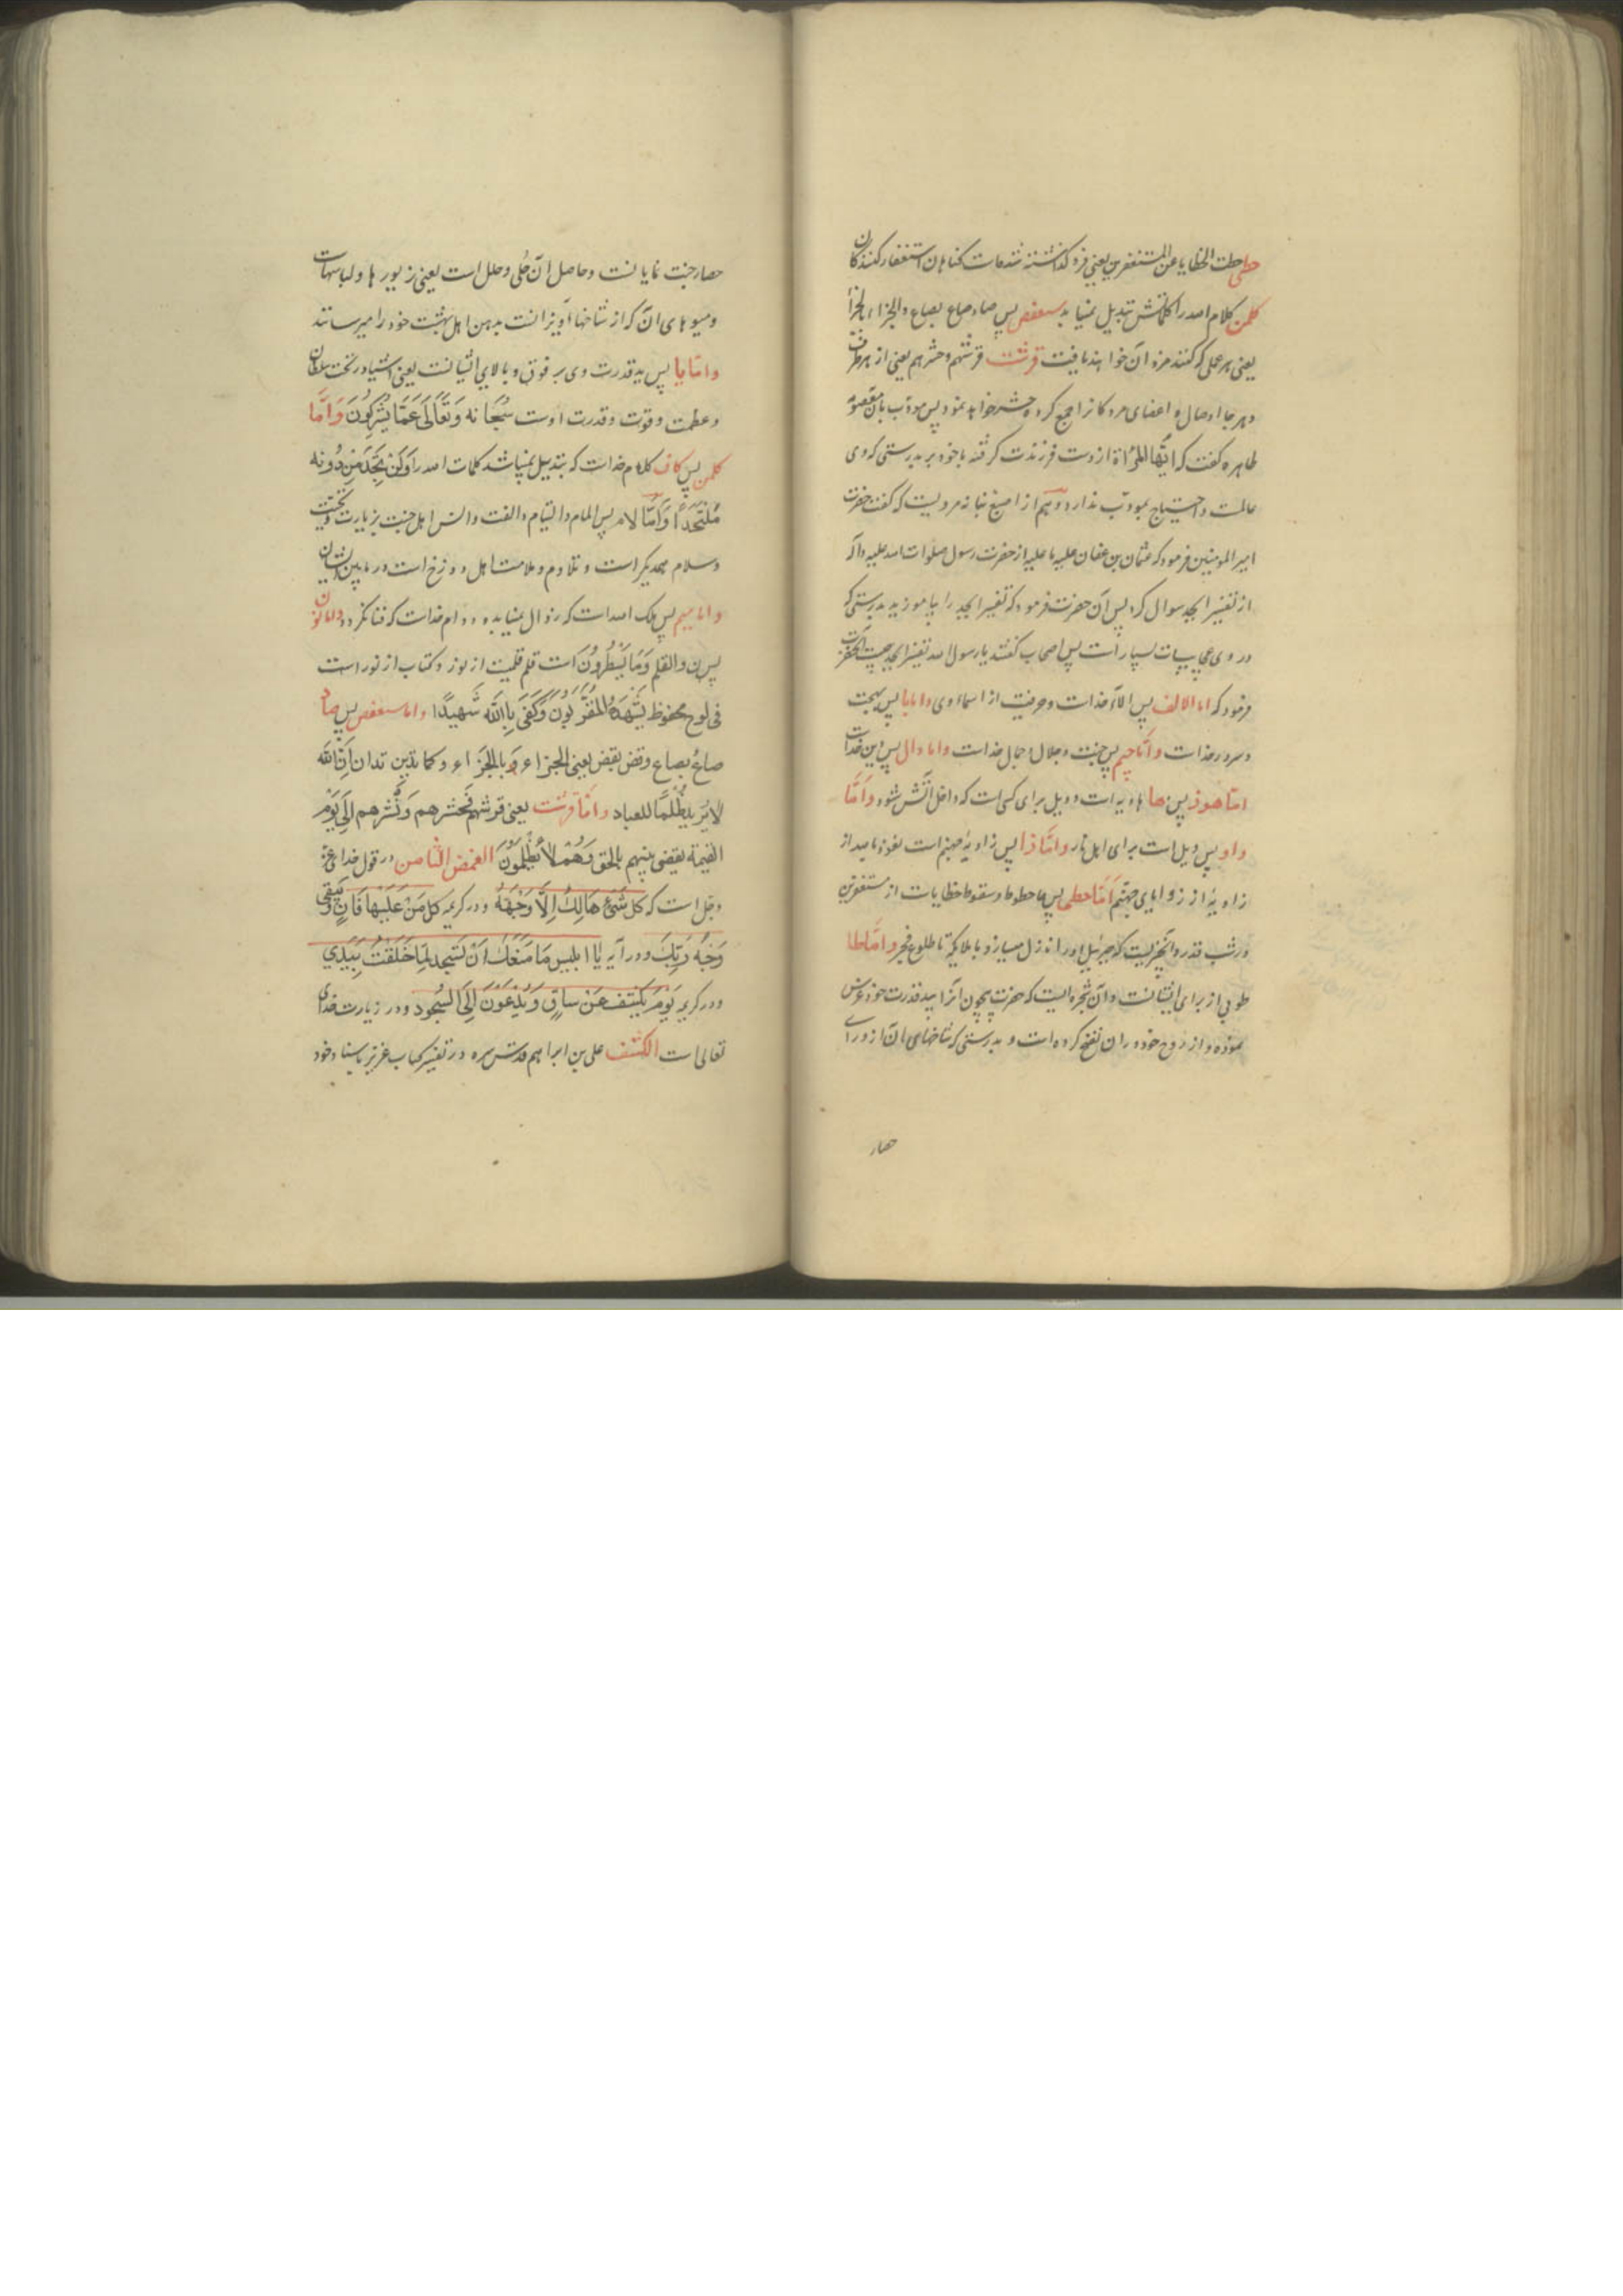 حطی حطت الخطایا عن المستغفرین یعنی فرو گذاشته شده است گناهان استغفار کنندگان
کلمن کلام الله را کلماتش تبدیل نمیابد سعفص پس صاد صاع بصاع و الجزاء بالجزا
یعنی هر عملی که کنند مزد آن خواهند یافت قرشت قرشتهم و حشرهم یعنی از هر طرف
و هر جا اوصال و اعضای مردکانرا جمع کرده حشر خواهد نمود پس مودب بان معصومه
طاهره کفت که ایتها المراة از دست فرزندت کرفته با خود ببر بدرستی که وی
عالمست و احتیاج بمودب ندارد دویم از اصبغ نباته مرویست که کفت حضرت
امیر المومنین فرمود که عثمان بن عفان علیه ما علیه از حضرت رسول صلوات الله علیه و آله
از تفسیر ابجد سوال کرد پس آن حضرت فرمود که تفسیر ابجد را بیاموزید بدرستی که
در وی عجایبات بسیار است پس اصحاب کفتند یا رسول الله تفسیر ابجد چیست آنحضرت
فرمود که اما الالف پس آلاء خداست و حرفیست از اسماء وی و اما با پس بهجت
و سرور خداست و اما جیم پس جنت و جلال و جمال خداست و اما دال پس دین خداست
اما هوز پس ها هاویه است و ویل برای کسی است که داخل آتش شود و اما
واو پس ویل است برای اهل نار و اما زا پس زاویهٔ جهنم است نعوذ بالله از
زاویهٔ از زوایای جهنم اما حطی پس حا حطوط و سقوط خطایاست از مستغفرین
در شب قدر و آنچیزیست که جبرئیل او را نازل میسازد با ملایکه تا طلوع فجر و اما طا
طوبی از برای ایشانست و آن شجره ایست که حضرت بیچون آنرا بید قدرت خود غرس
نموده و از روح خود در ان نفخ کرده است و بدرستی که شاخهای آن از ورای
حصار
حصار جنت نمایانست و حاصل آن حُلی و حلل است یعنی زیورها و لباسهاست
و میوهای آن که از شاخها آویزانست بدهن اهل بهشت خود را میرسانند
و اما یا پس ید قدرت وی بر فوق و بالای ایشانست یعنی اشیا در تحت سلطان
و عظمت و قوت و قدرت اوست سُبحانه وَتَعالَی عَمّا یُشرِکُونَ وَاَمّا
کلمن پس کاف کلام خداست که تبدیل نمیباشد کلمات الله را وَلَن تَجِدَ مِن دُونِه
مُلتَحَداً وَاَمّا لام پس المام و التیام و الفت و انس اهل جنت بزیارت و تحیت
و سلام همدیکر است و تلاوم و ملامت اهل دوزخ است در مابین ایشان
و اما میم پس ملک الله است که زوال نمیابد و دوام خداست که فنا نکردد و اما نون
پس ن والقلم وَمَا یَسطُرُونَ است قلم قلمیست از نور و کتاب از نور است
فی لوح محفوظ یَشهَدُهُ المُقَرَّبُونَ وَکَفَی بِاللّه شَهیدًا و اما سعفص پس صاد
صاع بصاع وقض بقض یعنی الجزاء بالجَزاء و کما تدین تدان اِنّ اللّه
لا یُرید ظُلمًا للعباد و اما قرشت یعنی قرشهم فَحشرهم وَنَشرهم اِلَی یَوم
القیمة یقضی بینهم بالحق وَهُم لا یُظلَمُونَ الغمض الثامن در قول خدا عز
وجل است که کل شَئ هَالِکٌ اِلّا وَجهَهُ و در کریمه کل مَن عَلَیها فَانٍ وَیَبقَی
وَجهُ رَبِّکَ و در آیه یا ابلیس مَا مَنَعَکَ اَن تَسجد لِما خَلَقتُ بِیَدی
و در کریمه یَومَ یُکشَف عَن ساقٍ وَیُدعَونَ اِلَی السُجود و در زیارت خدای
تعالی است الکشف علی بن ابراهیم قدس سره در تفسیر کتاب عزیز باسناد خود